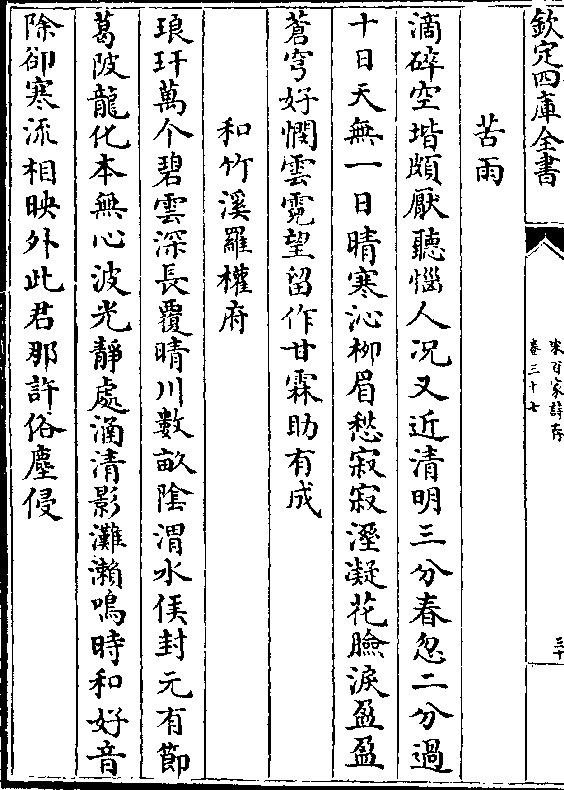 欽定四庫全書
宋百家詩存
卷三十七
三十
苦雨
滴碎空堦頗厭聽惱人况又近清明三分春忽二分過
十日天無一日晴寒沁栁眉愁寂寂溼凝花臉淚盈盈
蒼穹好憫雲霓望留作甘霖助有成
和竹溪羅權府
琅玕萬个碧雲深長覆晴川數畝陰渭水侯封元有節
葛陂龍化本無心波光靜處涵清影灘瀨鳴時和好音
除卻寒流相映外此君那許俗塵侵